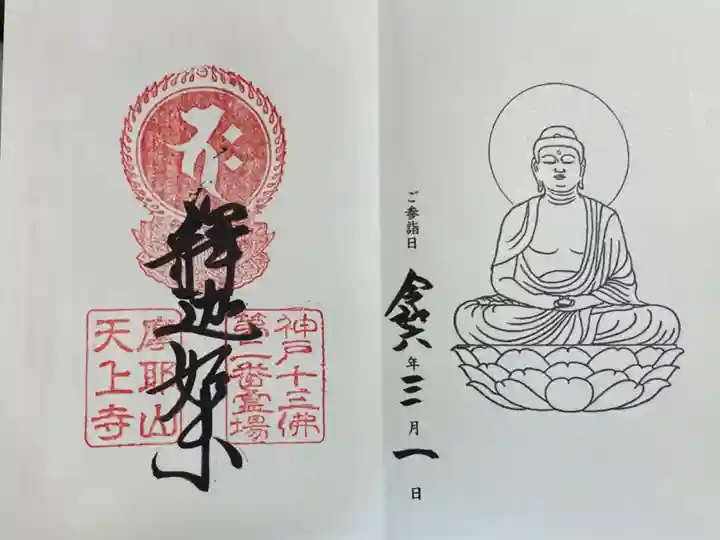 ご参詣日
令和六年三月一日
釋迦如来
神戸十三佛
第二番霊場
摩耶山
天上寺